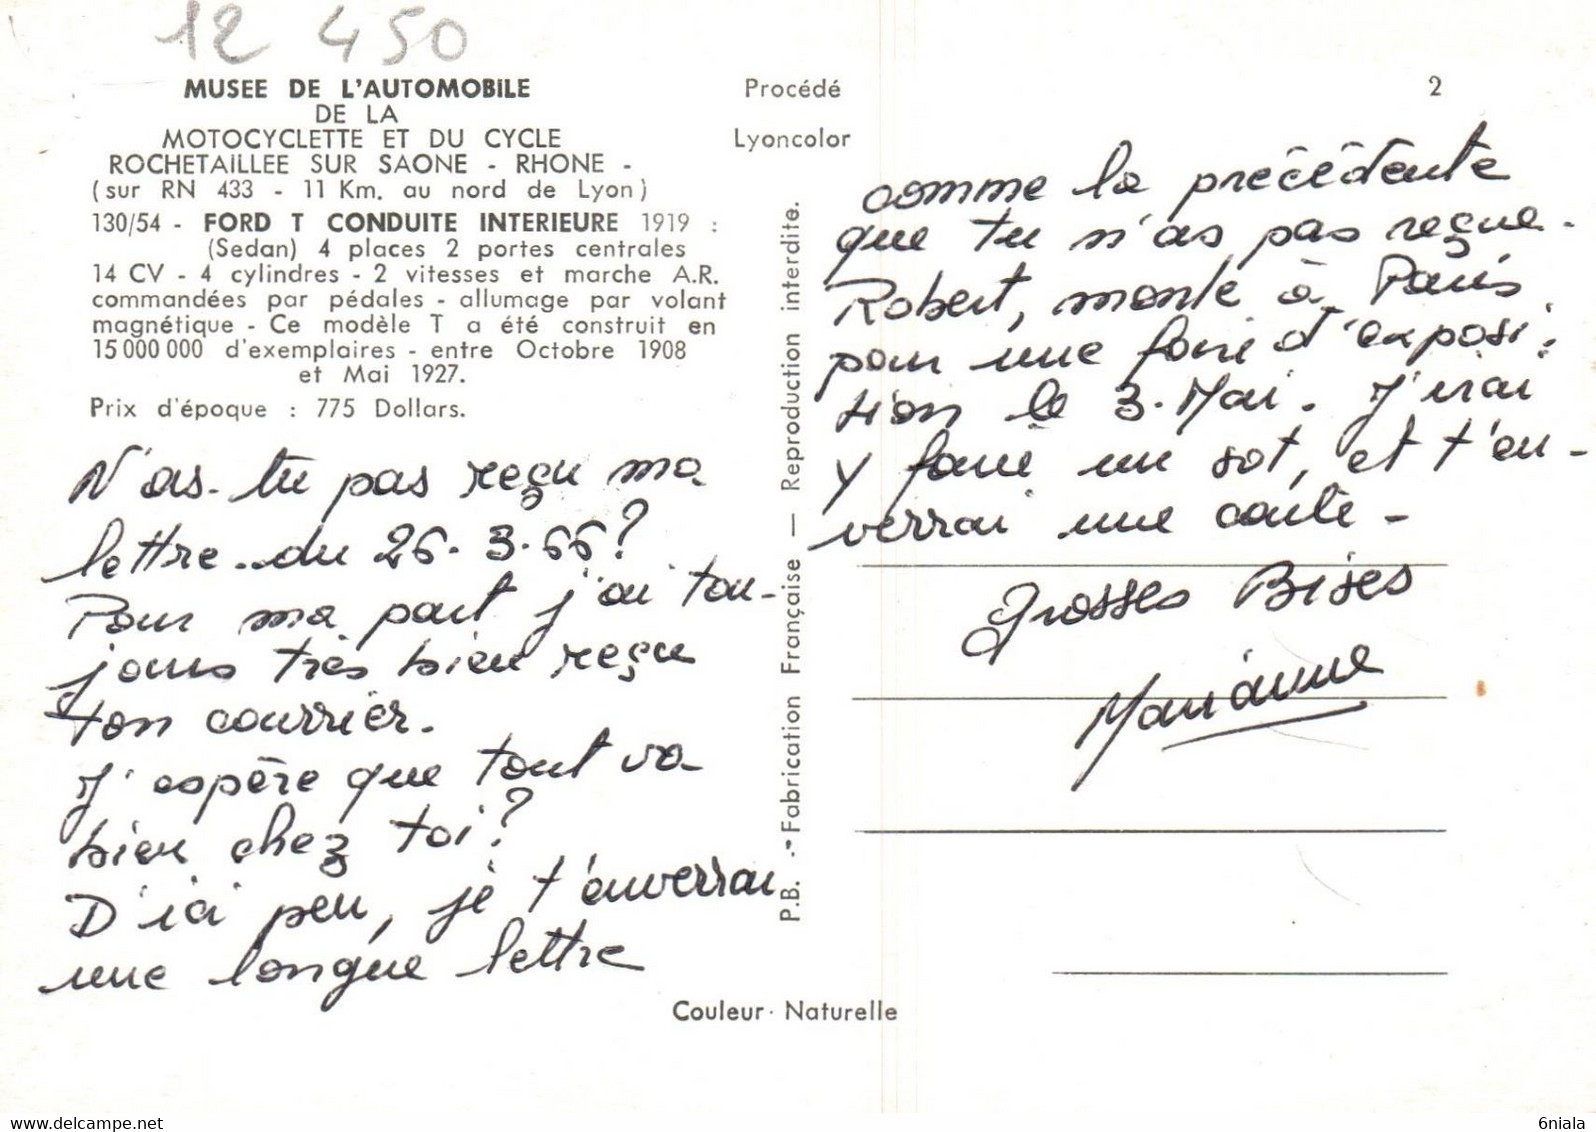 12 450
MUSEE DE L'AUTOMOBILE
DE LA
MOTOCYCLETTE ET DU CYCLE
ROCHETAILLEE SUR SAONE - RHONE -
(sur RN 433 - 11 Km. au nord de Lyon)
130/54 - FORD T CONDUITE INTERIEURE 1919 :
(Sedan) 4 places 2 portes centrales
14 CV - 4 cylindres - 2 vitesses et marche A.R.
commandées par pédales - allumage par volant
magnétique - Ce modèle T a été construit en
15 000 000 d'exemplaires - entre Octobre 1908
et Mai 1927.
Prix d'époque : 775 Dollars.
N'as-tu pas reçu ma
lettre du 26.3.66?
Pour ma part j'ai tou-
jours très bien reçu
ton courrier.
J'espère que tout va
bien chez toi?
D'ici peu, je t'enverrai
une longue lettre
Procédé
Lyoncolor
P.B. - Fabrication Française — Reproduction interdite.
Couleur Naturelle
2
comme la précédente
que tu n'as pas reçue.
Robert, monte à Paris
pour une foire d'exposi-
tion le 3 Mai. J'irai
y faire un sot, et t'en-
verrai une carte -
Grosses Bises
Marianne
6niala